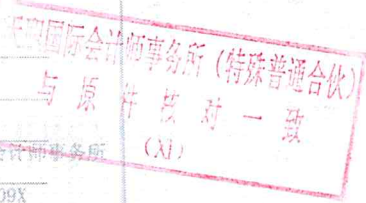 国际会计师事务所（特殊普通合伙）
与原件核对一致
（XI）
计师事务所
09X